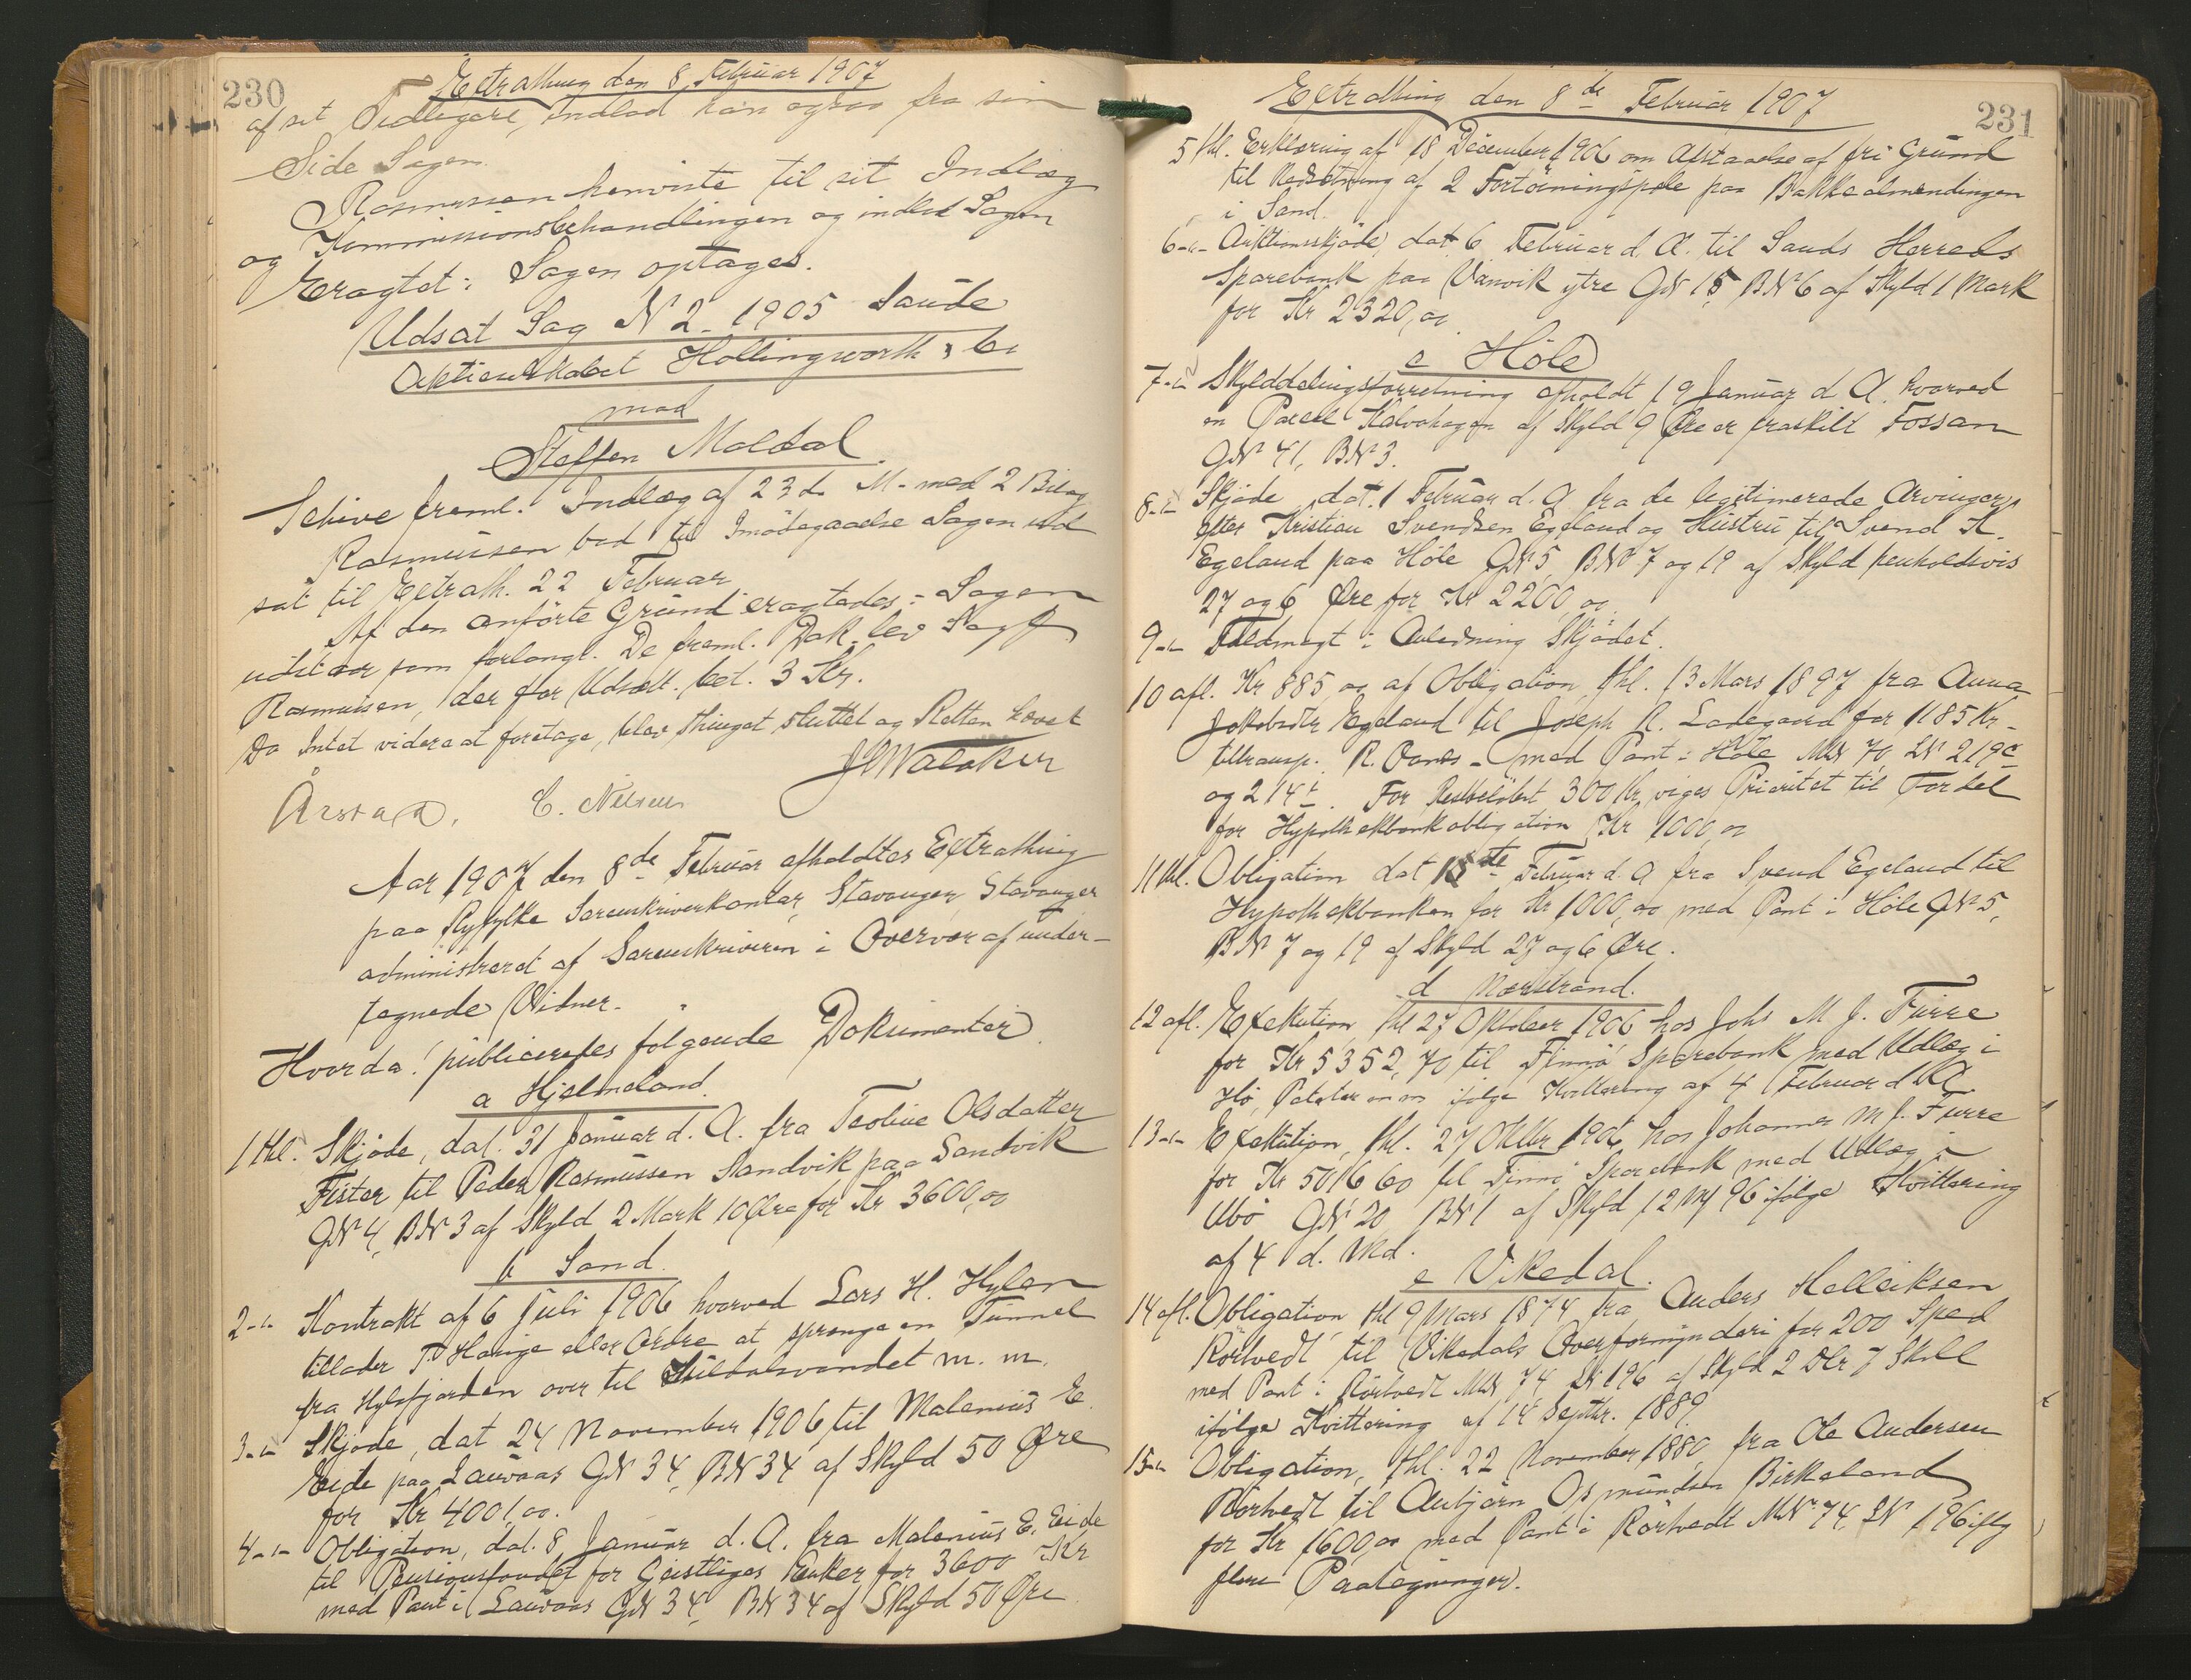 230
Extrathing den 8 Februar 1907
af sit Tidligere, Indlod han ogsaa fra sin
Side Sagen.
Rasmussen henviste til sit Indlæg
og Kommissionsbehandlingen og indlod Sagen
Eragtet: Sagen optages.
Udsat Sag N 2 - 1905 Saude
Aktieselskabet Hollingworth & Co
mod
Steffen Moldal.
Schive freml. Indlæg af 23 d. M. med 2 Bilag
Rasmussen bad til Imødegaaelse Sagen ud
sat til Extrath. 22 Februar
Af den anførte Grund eragtedes: Sagen
udsættes som forlangt. De freml. Dok. blev
Rasmussen, der for Udsætt. bet. 3 Kr.
Da Intet videre at foretage, blev Thinget sluttet og Retten hævet
Årstad. C. Nilsen
Aar 1907 den 8de Februar afholdtes Extrathing
paa Ryfylke Sorenskriverkontor, Stavanger Stavanger
administreret af Sorenskriveren i Overvær af under-
tegnede Vidner.
Hvorda! publiceredes følgende Dokumenter
a Hjelmeland.
1 thl. Skjøde, dat. 31 Januar d. A. fra Teoline Olsdatter
Fister til Peder Rasmussen Sandvik paa Sandvik
GN 4, BN 3 af Skyld 2 Mark 10 Øre for Kr 3600,oo
b Sand.
2-"- Kontrakt af 6 Juli 1906 hvorved Lars H. Hylen
tillader T. Hauge eller Ordre at sprenge en Tunnel
fra Hylsfjorden over til Suldalsvandet m. m.
3-"- Skjøde, dat 24 November 1906 til Malenius E.
Eide paa Lauvaas GN 34, BN 34 af Skyld 50 Øre
for Kr 4001,oo.
4-"- Obligation, dat. 8 Januar d. A. fra Malenius E. Eide
til Pensionsfondet for Geistliges Enker for 3600 Kr
med Pant i Lauvaas GN 34, BN 34 af Skyld 50 Øre
Extrathing den 8de Februar 1907
231
5 thl. Erklæring af 18 December 1906 om Afstaaelse af fri Grund
til Nedsætning af 2 Fortøiningspæle paa Bakkealmendingen
i Sand.
6-"- Auktionsskjøde, dat 6 Februar d. A. til Sands Herreds
Sparebank paa Vanvik ytre GN 15, BN 6 af Skyld 1 Mark
for Kr 2320,oo
c Høle
7-"- Skylddelingsforretning afholdt 19 Januar d. A. hvorved
en Parcel Kalvehagen af Skyld 9 Øre er fraskilt Fossan
GN 41, BN 3.
8-"- Skjøde, dat. 1 Februar d. A. fra de legitimerede Arvinger
efter Kristian Svendsen Egeland og Hustru til Svend K.
Egeland paa Høle GN 5, BN 7 og 19 af Skyld henholdsvis
27 og 6 Øre for Kr 2200,oo.
9-"- Fuldmagt i Anledning Skjødet.
10 afl. Kr 885,oo af Obligation, thl. 13 Mars 1897 fra Anna
Jakobsdtr Egeland til Joseph R. Ladegaard for 1185 Kr -
tiltransp. R. Oanes - med Pant i Høle MN 70, LN 219c
og 214b. For Restbeløbet 300 Kr viges Prioritet til Fordel
for Hypothekbankobligation Kr 1000,oo
11 thl. Obligation dat 15de Februar d. A fra Svend Egeland til
Hypothekbanken for Kr 1000,oo med Pant i Høle GN 5,
BN 7 og 19 af Skyld 27 og 6 Øre.
d Nærstrand.
12 afl. Exekution, thl 27 Oktober 1906 hos Johs M. J. Furre
for Kr 5352,70 til Finnø Sparebank med Udlæg i
Hø, Poteter m m ifølge Kvittering af 4 Februar d. A.
13-"- Exekution, thl. 27 Oktbr 1906 hos Johannes M. J. Furre
for Kr 5016 60 til Finnø Sparebank med Udlæg i
Ubø GN 20 BN 1 af Skyld 12 M 96 ifølge Kvittering
af 4 d. Md.
e Vikedal.
14 afl. Obligation thl 9 Mars 1874 fra Anders Helleiksen
Rørtvedt til Vikedals Overformynderi for 200 Sped
med Pant i Rørtvedt MN 74, LN 196 af Skyld 2 Dlr 7 Skill
ifølge Kvittering af 14 Septbr. 1889.
15-"- Obligation, thl. 22 November 1880, fra Ole Andersen
Rørtvedt til Anbjørn Osmundsen Birkeland
for Kr 1600,oo med Pant i Rørtvedt MN 74, LN 196 iflg
flere Paategninger.